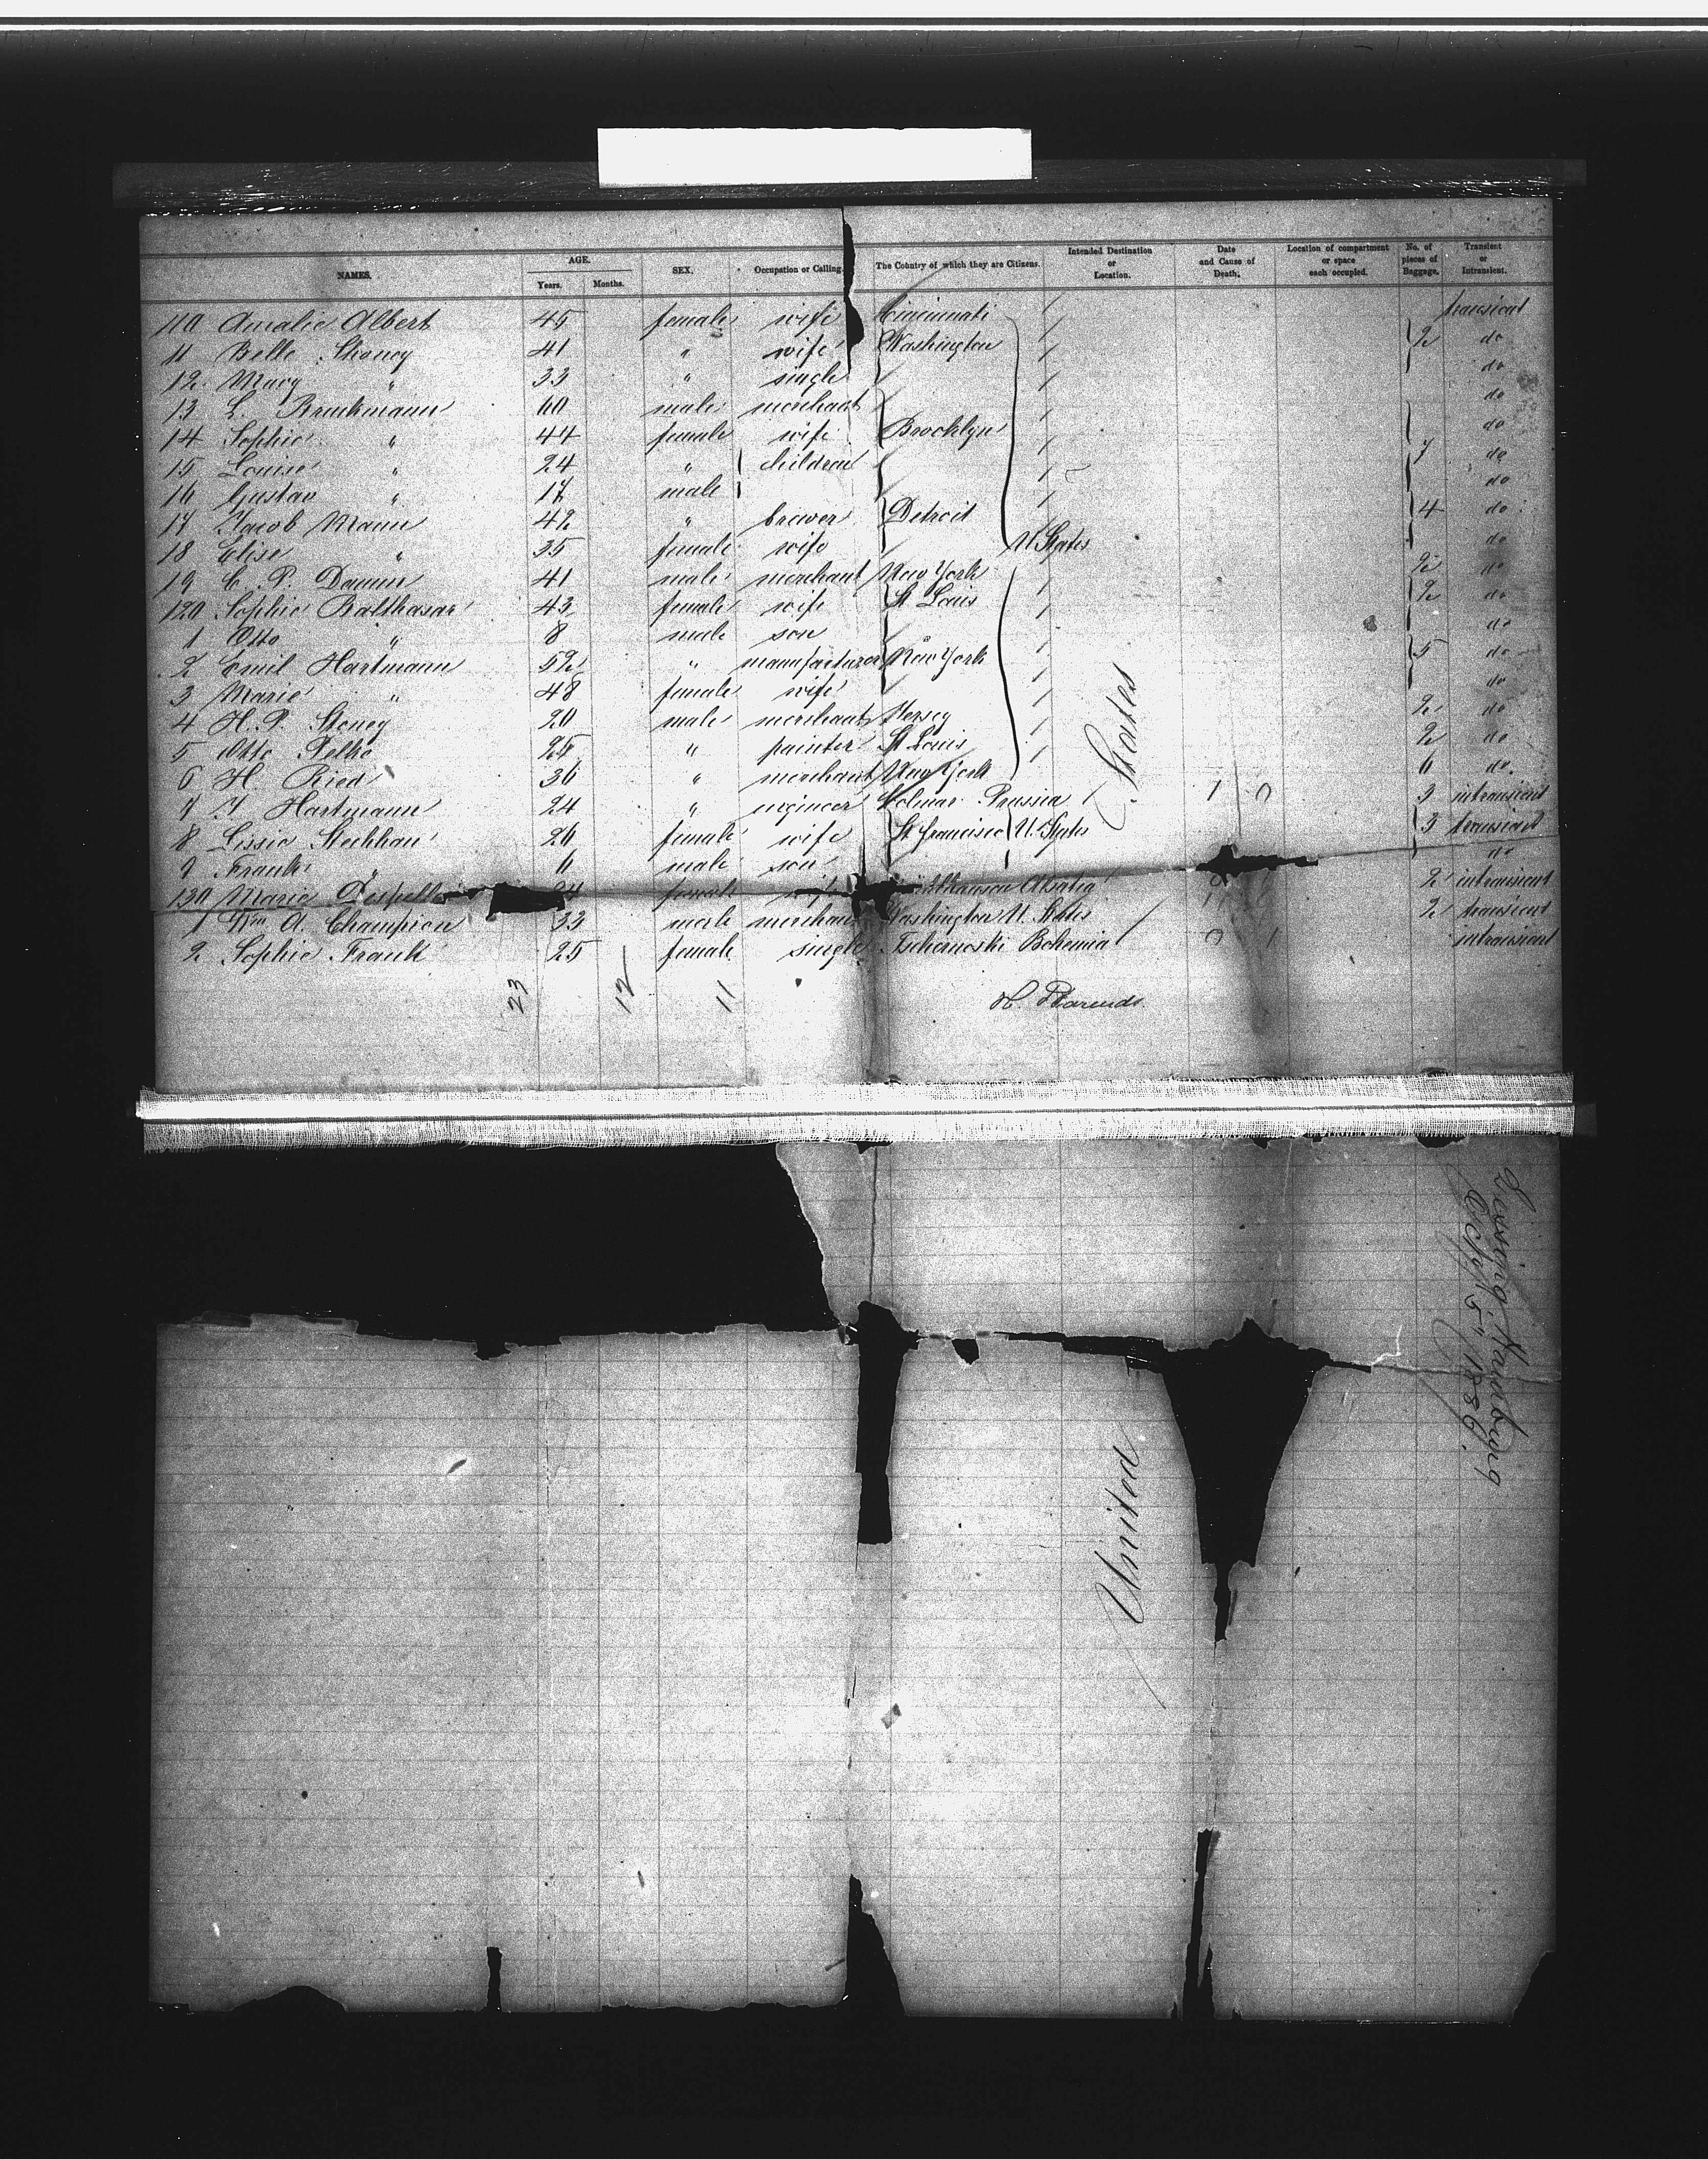 NAMES. AGE. Years. Months. SEX. Occupation or Calling. The Country of which they are Citizens. Intended Destination or Location. Date and Cause of Death. Location of compartment or space each occupied. No. of pieces of Baggage. Transient or Intransient.
110 Amalie Albert 45 female wife Cincinnati transient
11 Belle Stoney 41 " wife Washington 2 do
12 Mary " 33 " single do
13 L. Brinkmann 60 male merchant do
14 Sophie " 44 female wife Brooklyn do
15 Louise " 24 " children 7 do
16 Gustav " 17 male do
17 Jacob Mann 42 " brewer Detroit 4 do
18 Elise " 35 female wife U States do
19 C. P. Damm 41 male merchant New York 2 do
120 Sophie Balthasar 43 female wife St Louis 2 do
1 Otto " 8 male son do
2 Emil Hartmann 52 " manufacturer New York 5 do
3 Marie " 48 female wife do
4 H. P. Stoney 20 male merchant Jersey 2 do
5 Otto 25 " painter St Louis 2 do
6 H. Ried 36 " merchant New York 6 do.
7 Hartmann 24 " engineer Prussia 1 0 3 intransient
8 Lissie Stechhan 26 female wife St Francisco U. States 3 transient
9 Frank " 6 male son do
130 Marie female wife Alsatia 2 intransient
1 Wm A. Champion 33 male merchant Washington U. States 2 transient
2 Sophie Frank 25 female single Bohemia 0 1 intransient
23 12 11
H. Barends.
United States
Lessing, Hamburg
1886.